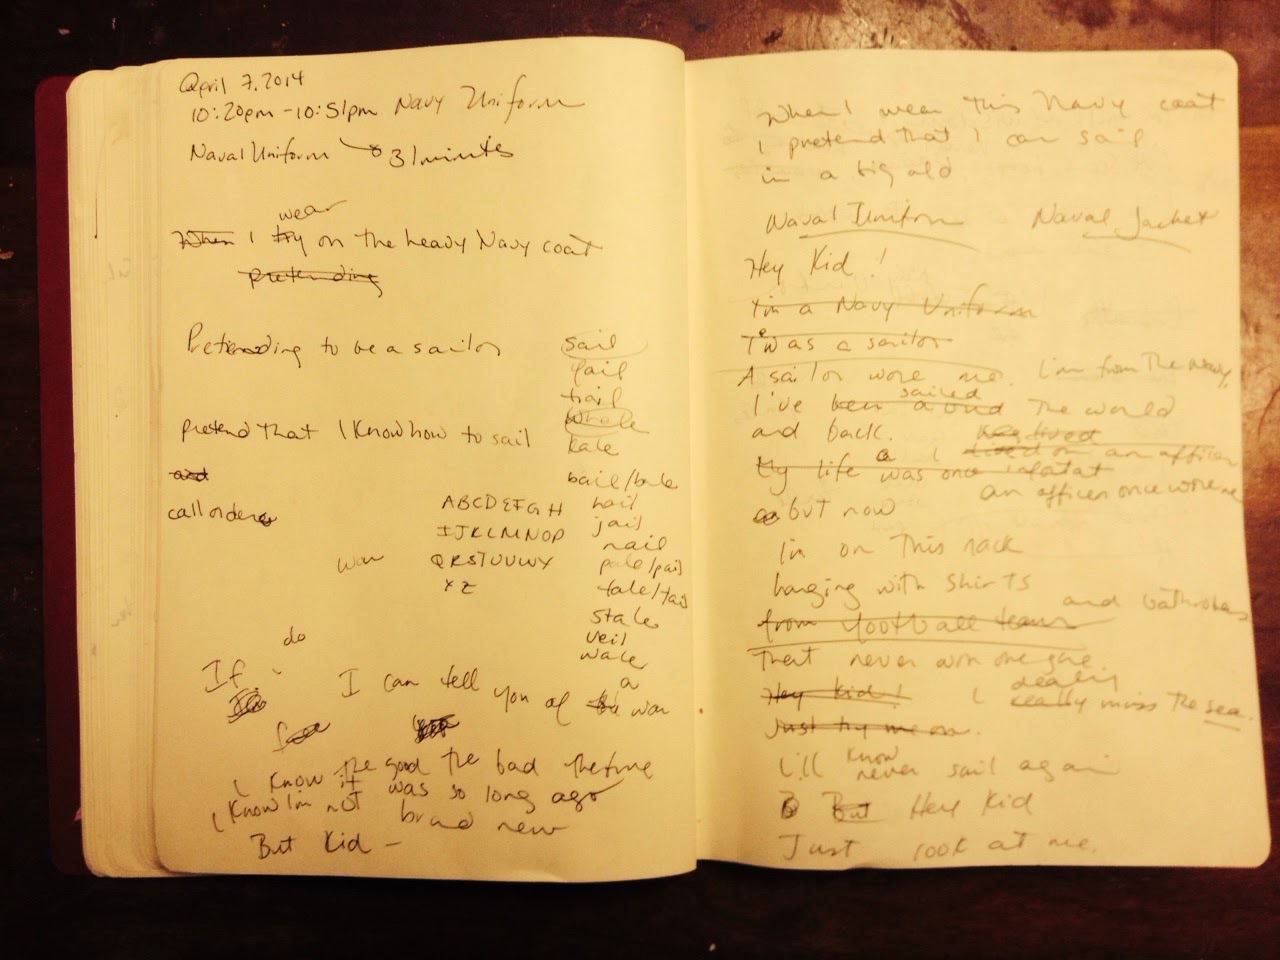 April 7, 2014
10:20pm - 10:51pm Navy Uniform
Naval Uniform 31 minutes
wear
When I try on the heavy Navy coat
pretending
Pretending to be a sailor
pretend that I know how to sail
and
call orders
sail
fail
trail
whale
kale
bail/bale
hail
jail
nail
pale/pail
tale/tail
stale
veil
wale
ABCDEFGH
IJKLMNOP
QRSTUVWY
XZ
war
do
If
I can tell you of a war
I know the good the bad the true
I know it was so long ago
I know I'm not brand new
But Kid -
When I wear this Navy coat
I pretend that I can sail
in a big old
Naval Uniform Naval Jacket
Hey Kid!
I'm a Navy Uniform
I was a sailor
A sailor wore me. I'm from the Navy,
sailed
I've been around the world
and back.
My life was once
an officer
an officer once wore me
but now
I'm on this rack
hanging with shirts
and bathrobes
from football teams
that never won one game.
Hey Kid!
I really miss the sea.
dearly
Just try me on.
know
I'll never sail again
But Hey Kid
Just look at me.